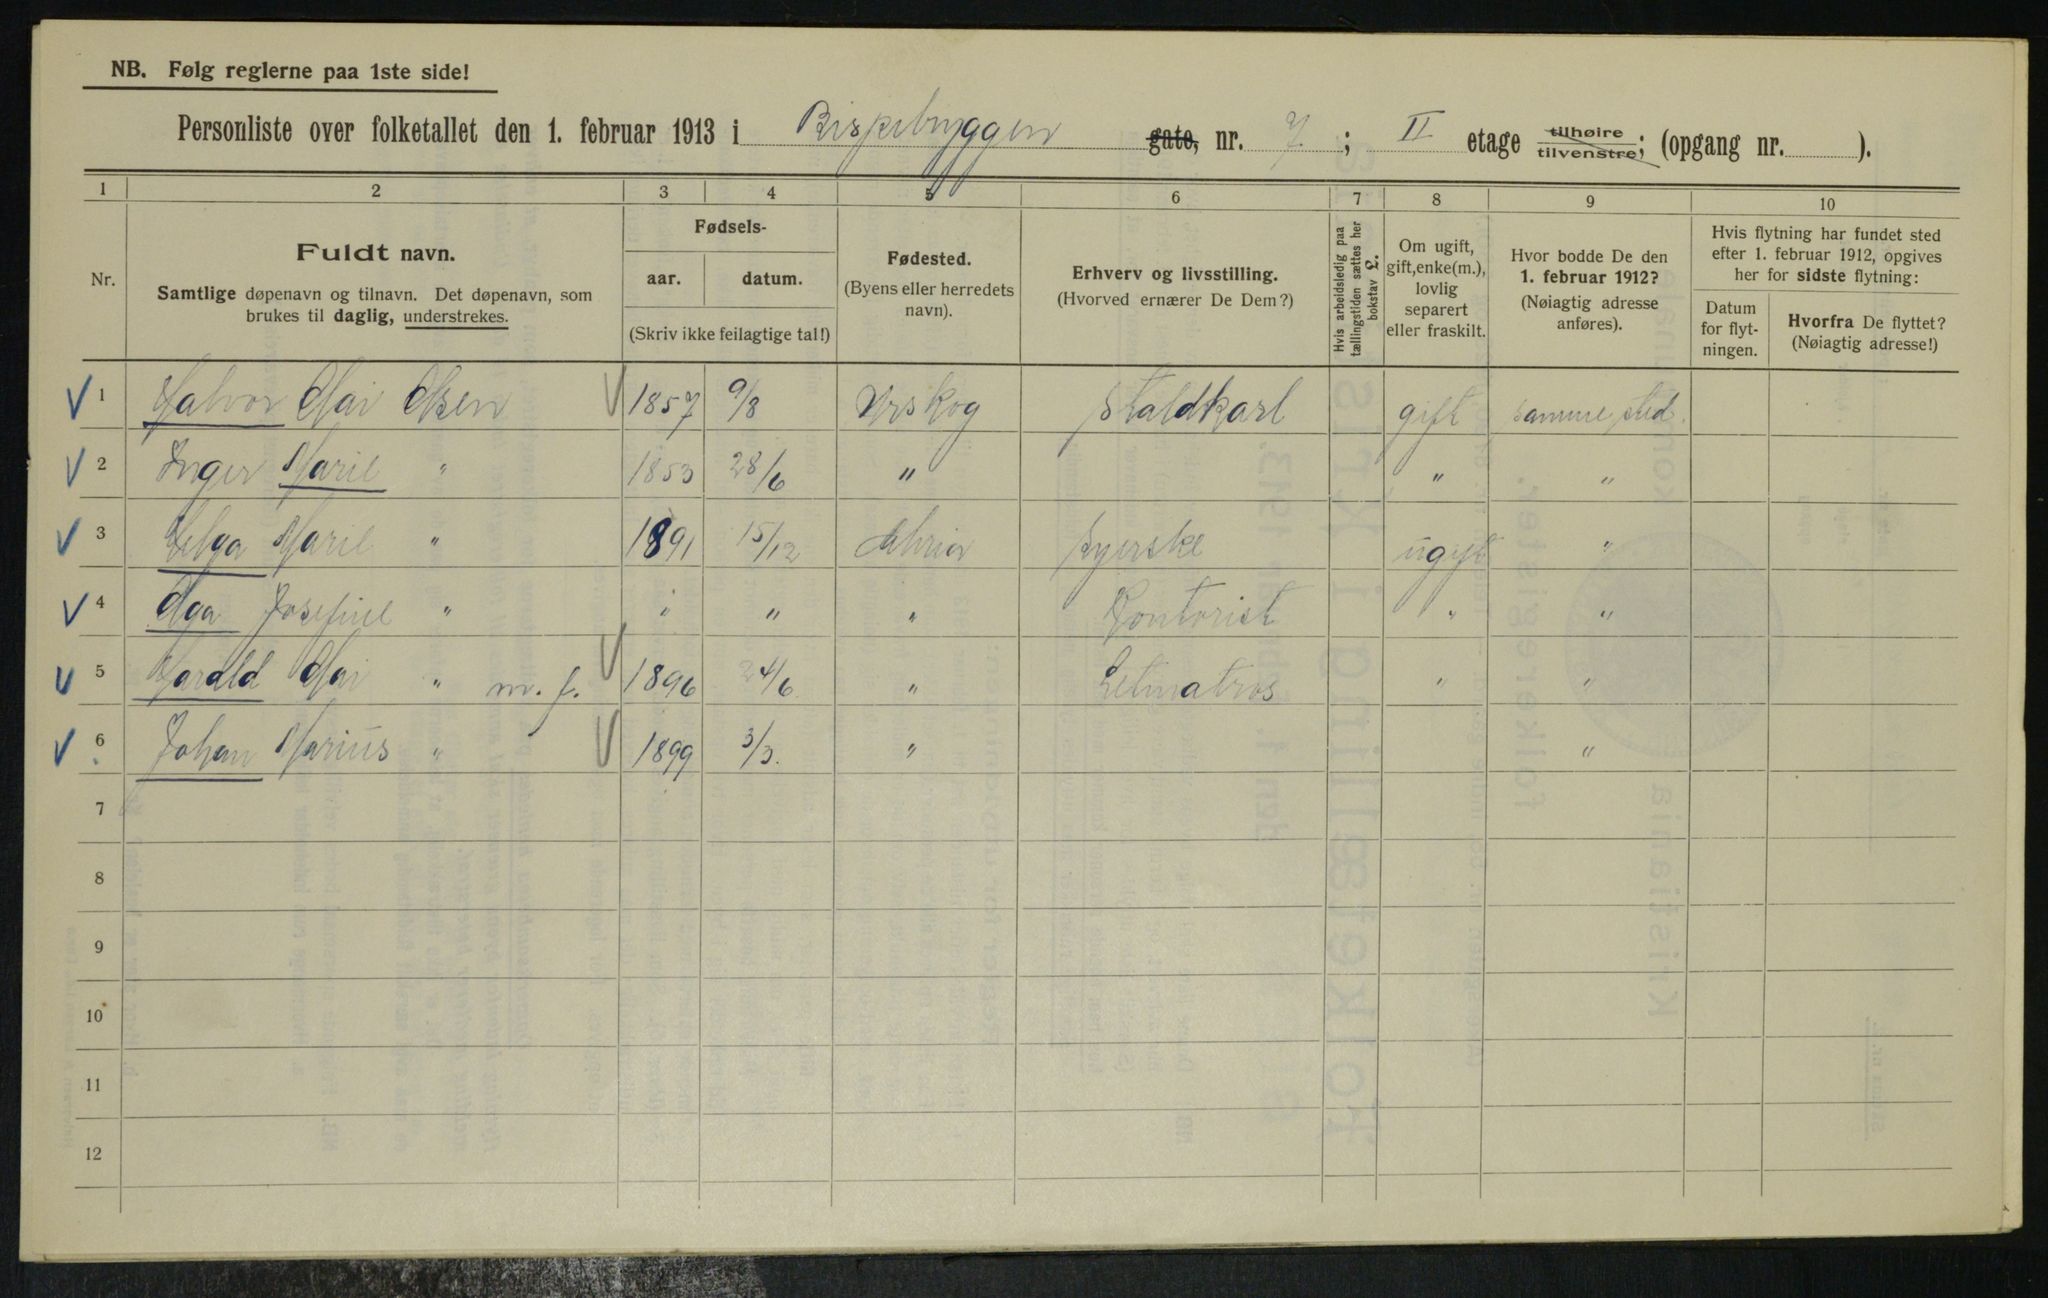 NB. Følg reglerne paa 1ste side!
Personliste over folketallet den 1. februar 1913 i Bispebryggen gate, nr. 7. ; II etage tilhøire tilvenstre; (opgang nr. ).
1 2 3 4 5 6 7 8 9 10
Nr.
Fuldt navn.
Samtlige døpenavn og tilnavn. Det døpenavn, som
brukes til daglig, understrekes.
Fødsels-
aar. datum.
(Skriv ikke feilagtige tal!)
Fødested.
(Byens eller herredets
navn).
Erhverv og livsstilling.
(Hvorved ernærer De Dem?)
Hvis arbeidsledig paa
tællingstiden sættes her
bokstav L.
Om ugift,
gift, enke(m.),
lovlig
separert
eller fraskilt.
Hvor bodde De den
1. februar 1912?
(Nøiagtig adresse
anføres).
Hvis flytning har fundet sted
efter 1. februar 1912, opgives
her for sidste flytning:
Datum
for flyt-
ningen.
Hvorfra De flyttet?
(Nøiagtig adresse!)
1 Halvor Olsen 1857 9/8 Urskog Staldkarl gift samme sted.
2 Inger Marie " 1853 28/6 " " "
3 Helga Marie " 1891 15/12 Kria Syerske ugift "
4 Aga Josefine " " " " Kontorist " "
5 Harald " m. f. 1896 24/6 " Letmatros " "
6 Johan Marius " 1899 3/3. " "
7
8
9
10
11
12